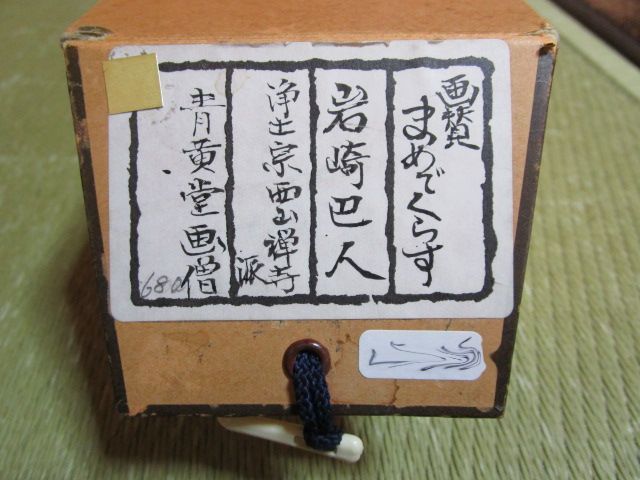 画賛
まめでくらす
岩崎巴人
浄土宗西山禅寺
派
青黄堂画僧
680